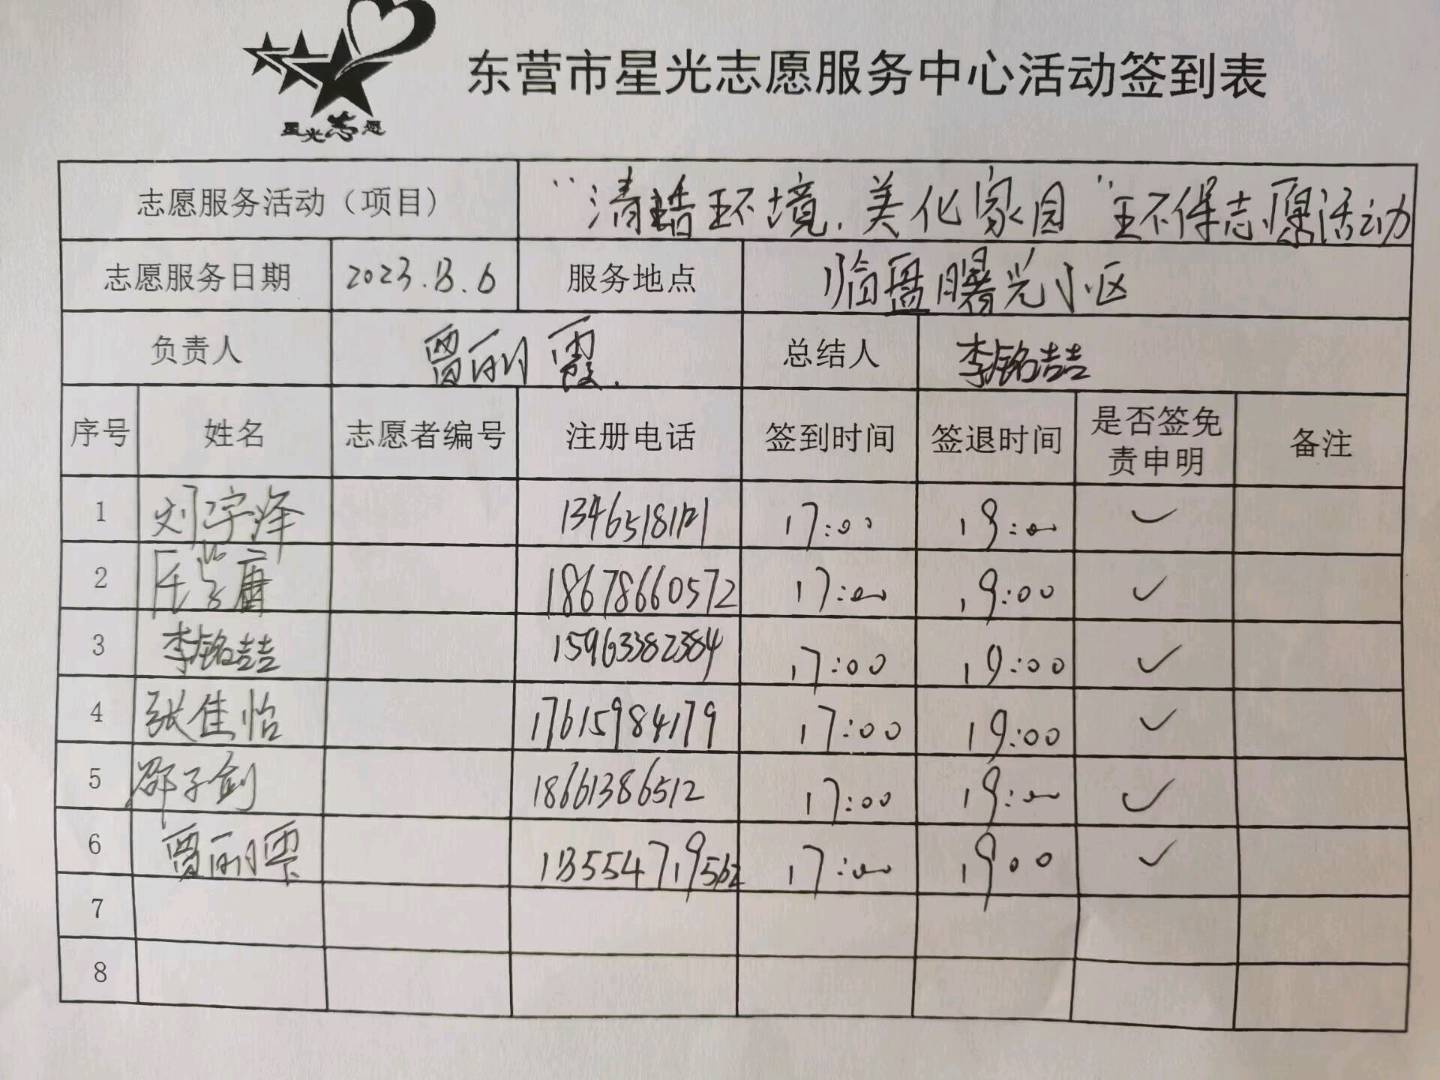 星光志愿
东营市星光志愿服务中心活动签到表
志愿服务活动（项目） “清洁环境.美化家园”环保志愿活动
志愿服务日期 2023.13.6 服务地点 临盘曙光小区
负责人 贾丽霞. 总结人 李铭喆
序号 姓名 志愿者编号 注册电话 签到时间 签退时间 是否签免责申明 备注
1 刘宇泽 17:00 19:00 ✓
2 18678660572 17:00 19:00 ✓
3 李铭喆 15963382384 17:00 19:00 ✓
4 张佳怡 17615984179 17:00 19:00 ✓
5 邵子剑 18661386512 17:00 19:00 ✓
6 贾丽霞 13554719562 17:00 19:00 ✓
7
8